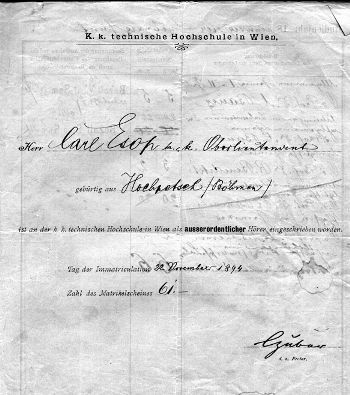 K. k. technische Hochschule in Wien.
Herr Carl Esop k. k. Oberlieutenant
gebürtig aus Hochpetsch (Böhmen)
ist an der k. k. technischen Hochschule in Wien als ausserordentlicher Hörer eingeschrieben worden.
Tag der Immatriculation 22 November 1894
Zahl des Matrikelscheines 61.—
Czuber
d. z. Rector.